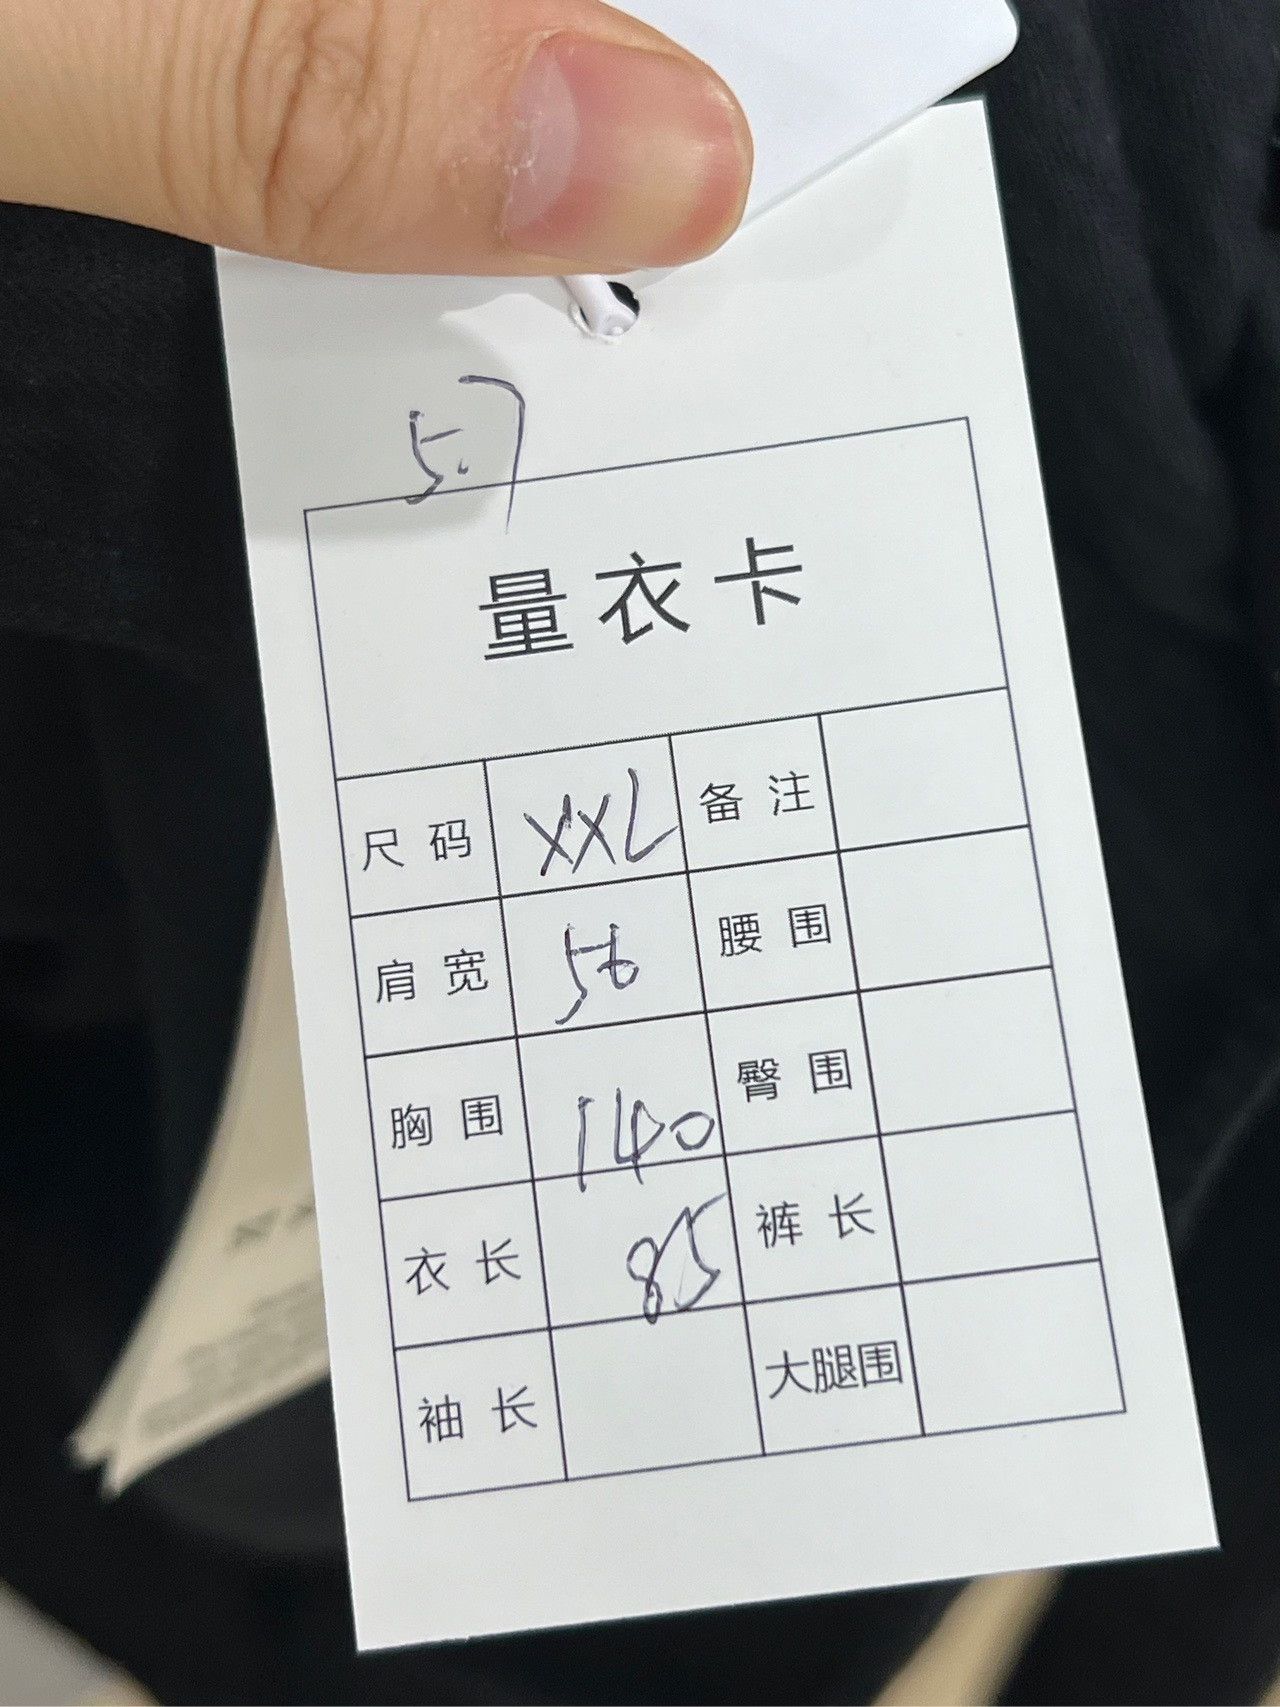 5.7
量衣卡
尺码 XXL 备注
肩宽 56 腰围
胸围 140 臀围
衣长 85 裤长
袖长 大腿围